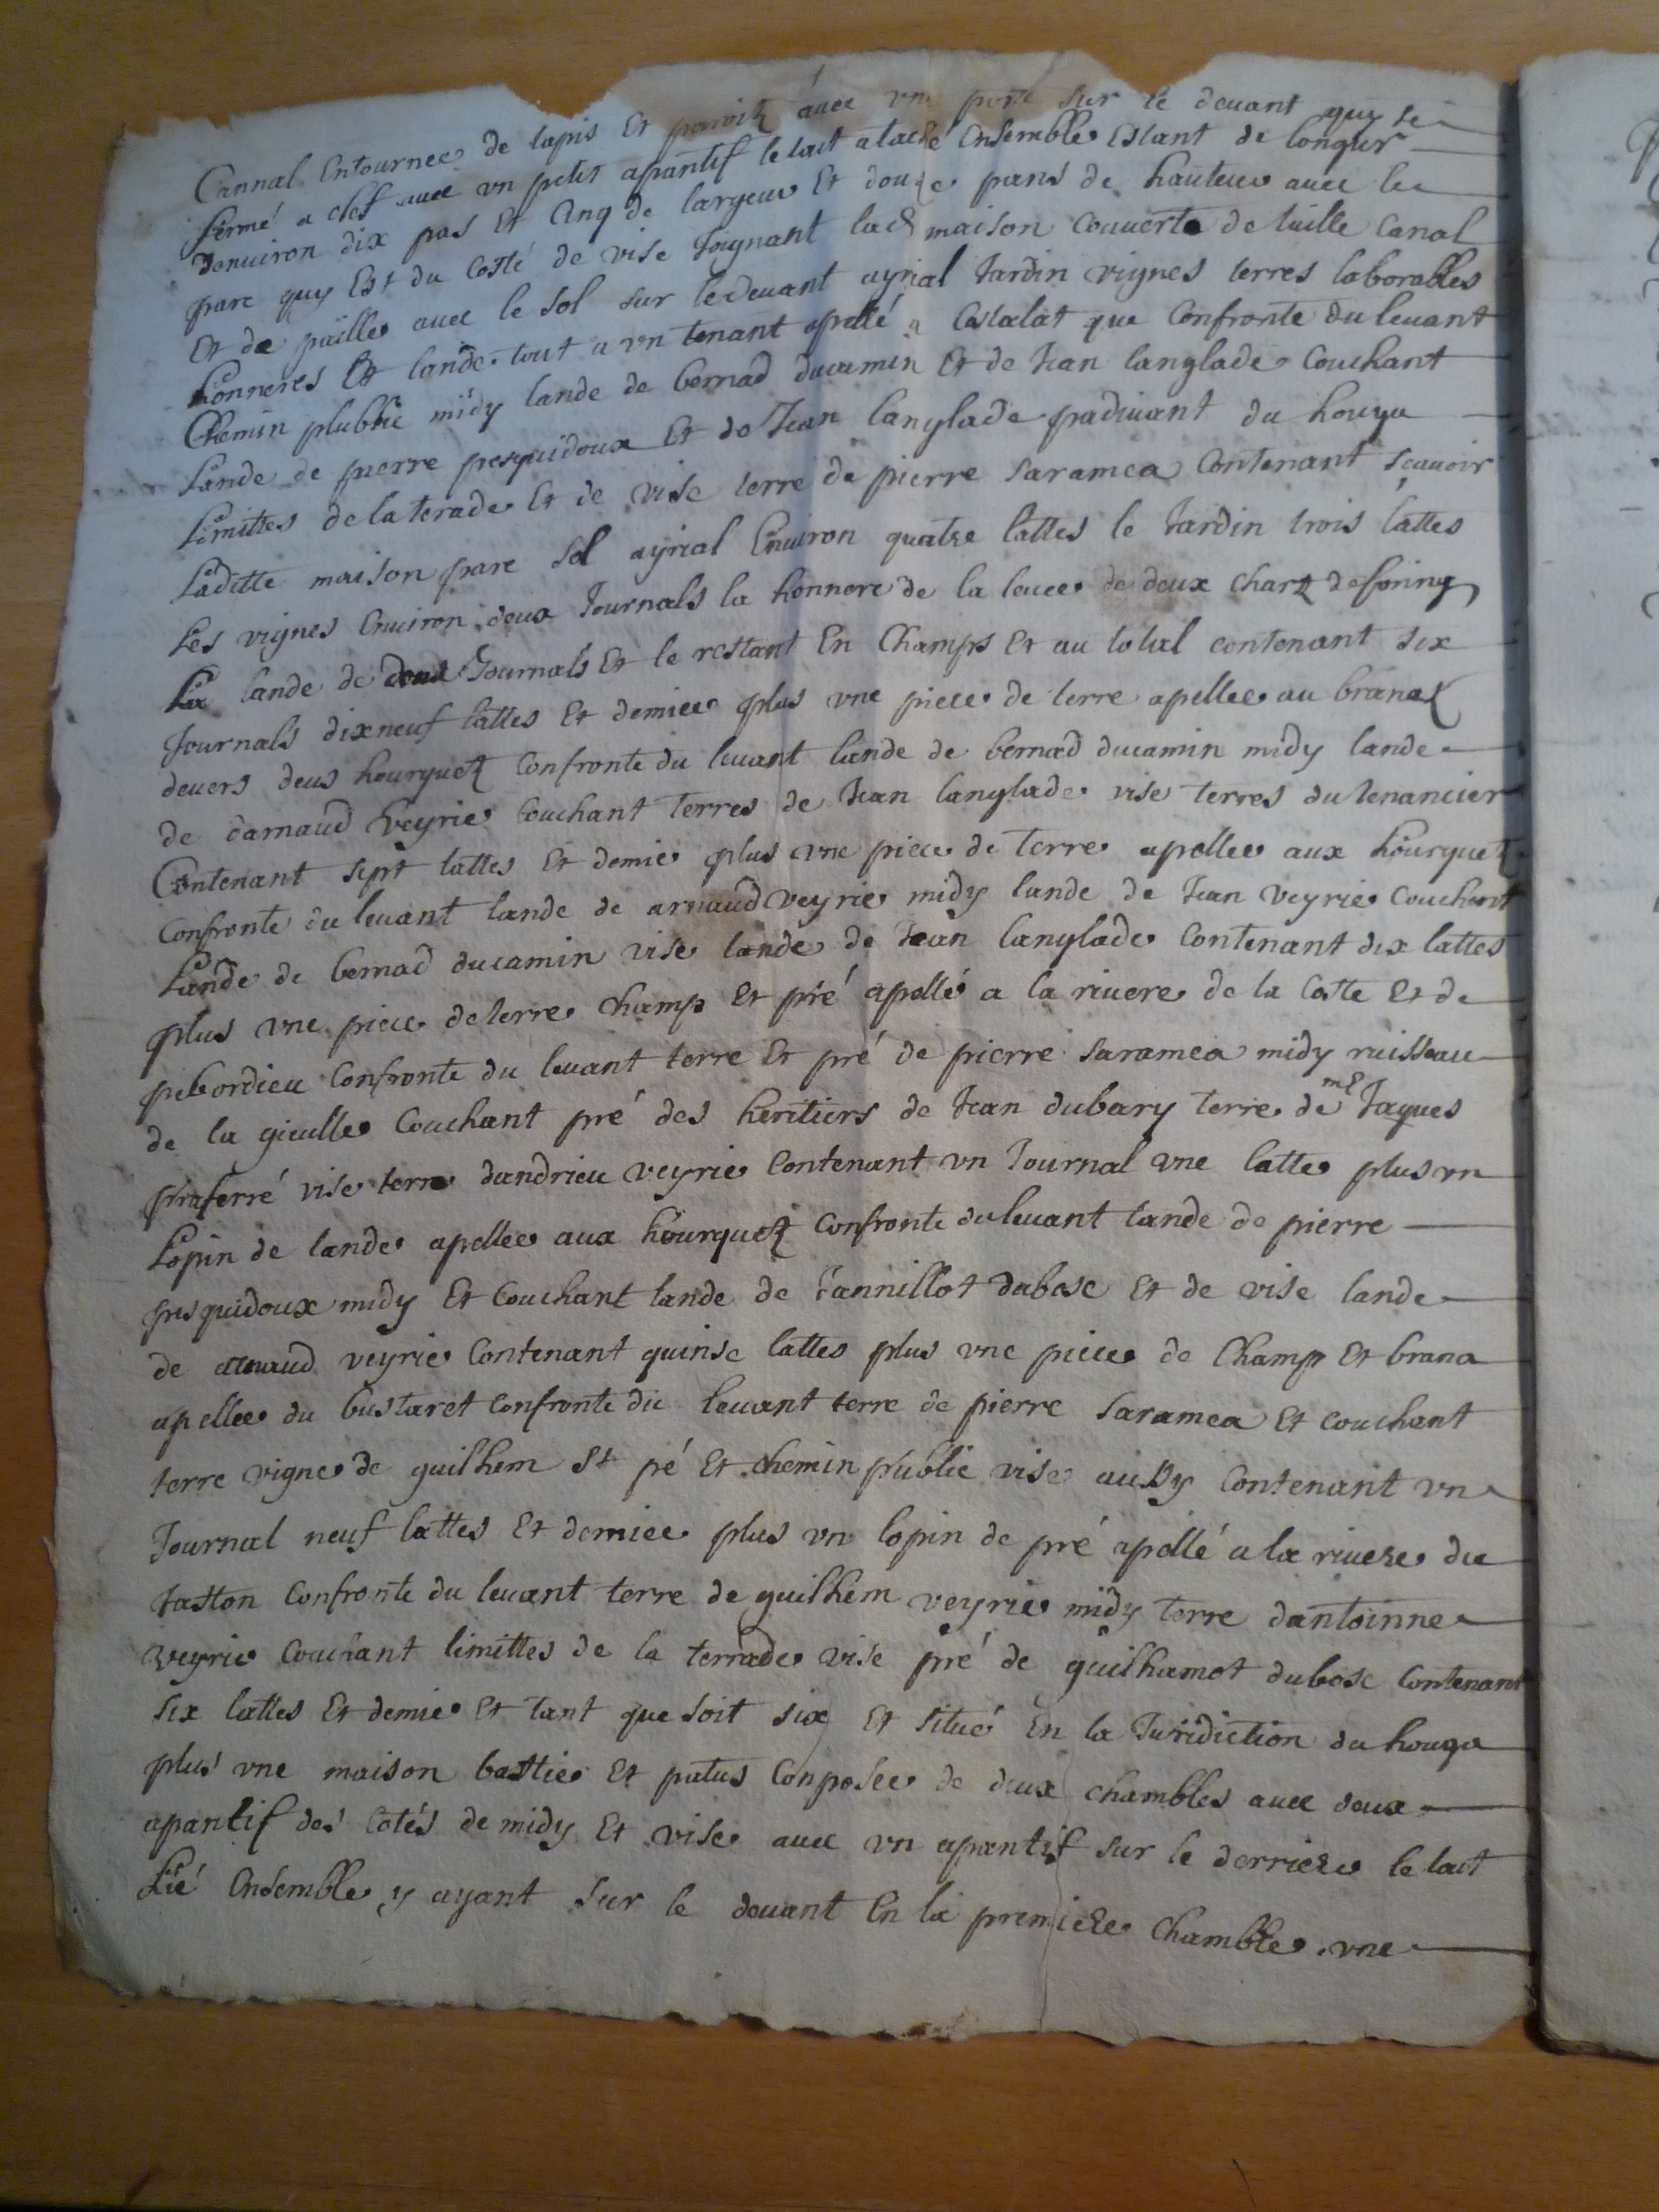 Cannal Entournee de tapis Et paroitz avec une porte sur le devant quy se
fermé a clef avec un petit apantif le tout atache Ensemble Estant de longur
denviron dix pas Et Cinq de largeur Et douze pans de hauteur avec le
parc quy Est du Costé de vise Joignant lad maison couverte de tuille Canal
Et de paille avec le sol sur le devant ayrial Jardin vignes terres laborables
honneres Et lande tout a un tenant apellé a Castalat que Confronte du levant
Chemin plublic midy lande de bernad ducamin Et de Jean langlade Couchant
Lande de pierre pesquidoux Et de Jean langlade padivant du houga
Limittes de la terade Et de vise terre de pierre Saramea Contenant scavoir
Laditte maison parc sol ayrial Environ quatre lattes le Jardin trois lattes
Les vignes Environ deux Journals la honnere de la levee de deux chartz de foing
La lande de deux Journals Et le restant En Champs Et au total contenant six
Journals dixneuf lattes Et demiee plus une piece de terre apellee au branatz
devers deus hourquetz Confronte du levant lande de bernad ducamin midy lande
de darnaud veyrie Couchant terres de Jean langlade vise terres du tenancier
Contenant sept lattes Et demie plus une piece de terre apellee aux hourquetz
Confronte du levant lande de arnaud veyrie midy lande de Jean veyrie Couchant
Lande de bernad ducamin vise lande de Jean langlade Contenant dix lattes
plus une piece de terre Champ Et pré apellé a la rivere de la Coste Et de
pebordieu Confronte du levant terre Et pré de pierre Saramea midy ruisseau
de la gieulle Couchant pré des heritiers de Jean dubary terre de mᵉ Jaques
praferré vise terre dandrieu veyrie Contenant un Journal une latte plus un
Lopin de lande apellee aux hourquetz Confronte du levant lande de pierre
pesquidoux midy Et Couchant lande de Jannillot dubosc Et de vise lande
de arnaud veyrie Contenant quinse lattes plus une piece de Champ Et brana
apellee du bustaret Confronte du levant terre de pierre Saramea Et couchant
terre vigne de guilhem St pé Et chemin public vise aussy Contenant un
Journal neuf lattes Et demiee plus un lopin de pré apellé a la rivere du
Jaston Confronte du levant terre de guilhem veyrie midy terre dantoinne
veyrie Couchant limittes de la terrade vise pré de guilhamot dubosc Contenant
six lattes Et demie Et tant que soit six Et situé En la Juridiction du houga
plus une maison bastie Et patus Conposee de deux chambles avec deux
apantif des Cotés de midy Et vise avec un apantif sur le derriere le tout
Lié Ensemble y ayant sur le devant En la premiere Chamble une